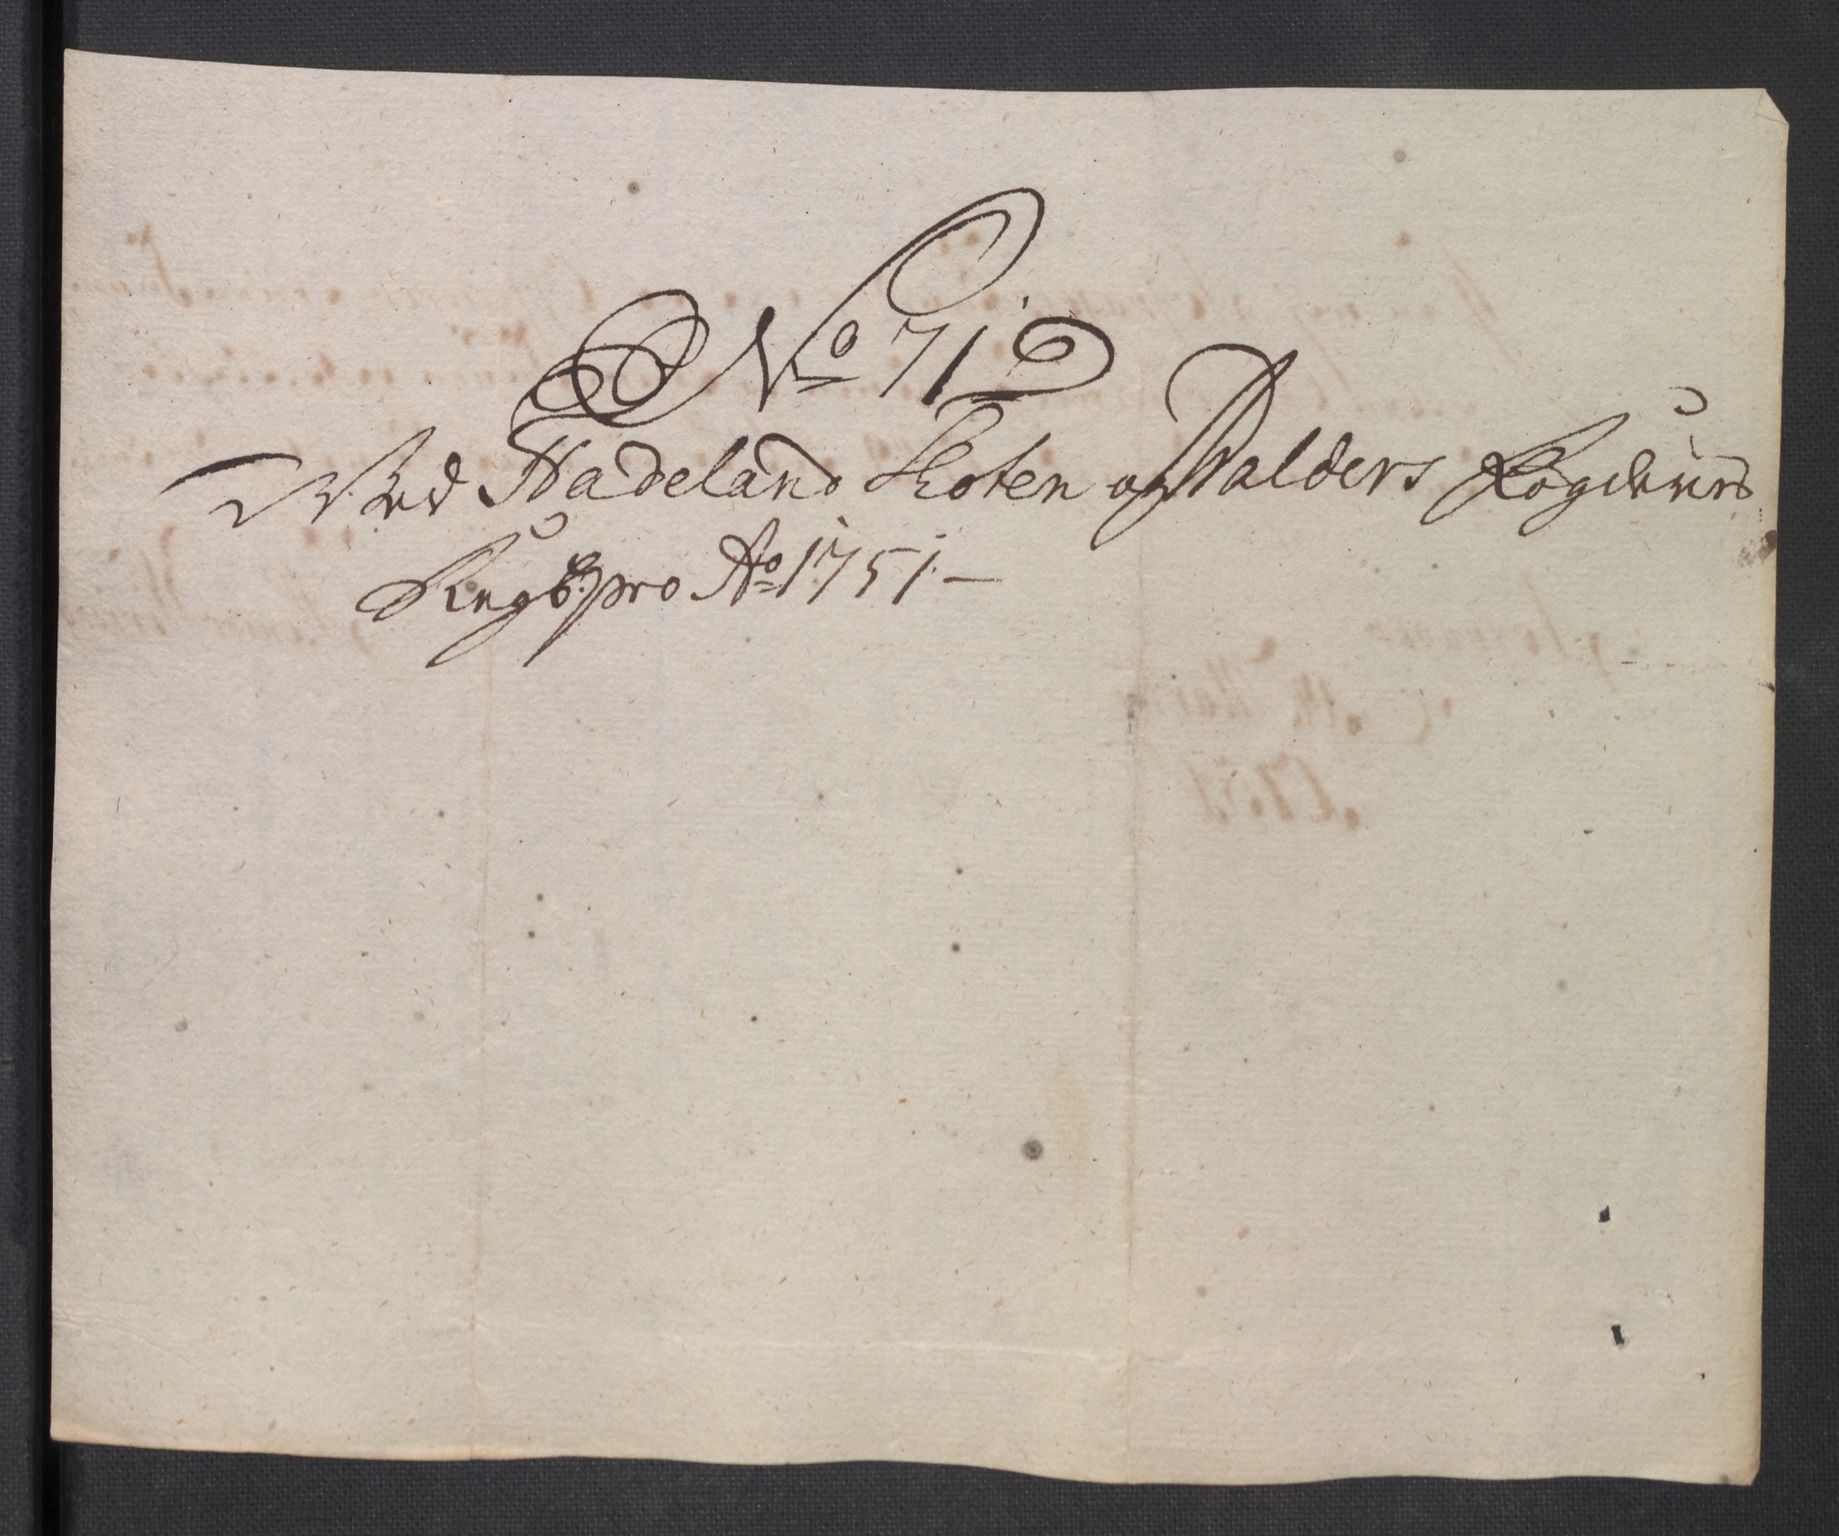 No 71
Ved Hadeland Toten og Valders Fogderies
Regsk: pro Ao 1751.—